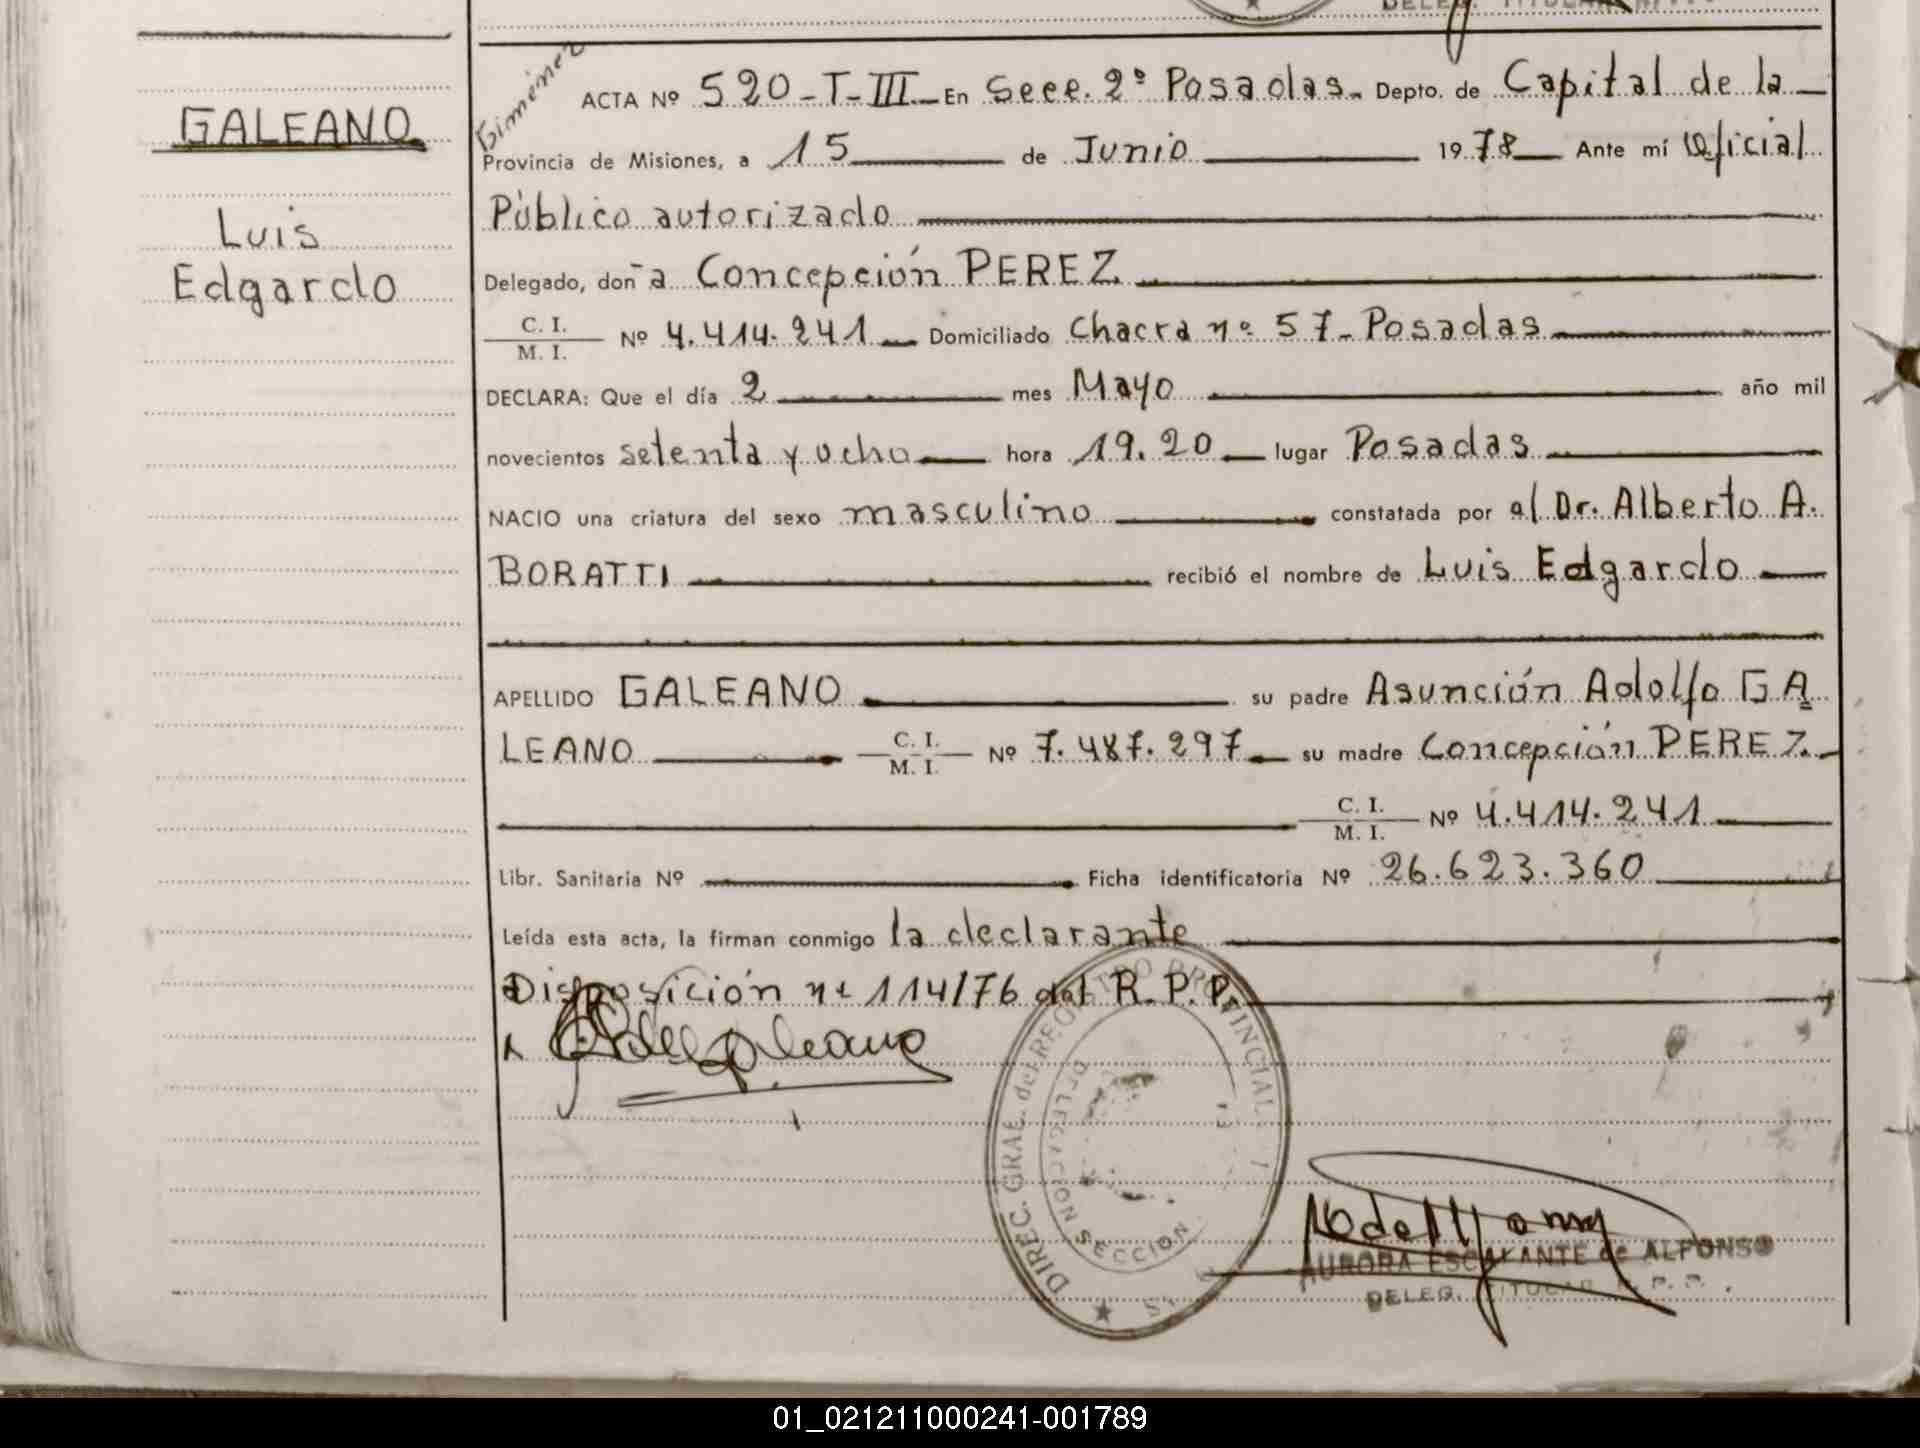 DELEG. TITULAR
GALEANO
Luis
Edgardo
Gimenez
ACTA Nº 520-T-III En Secc. 2º Posadas. Depto. de Capital de la
Provincia de Misiones, a 15 de Junio 1978 Ante mí Oficial
Público autorizado
Delegado, doña Concepción PEREZ
C. I.
M. I. Nº 4.414.241 Domiciliado Chacra nº 57-Posadas
DECLARA: Que el día 2 mes Mayo año mil
novecientos setenta y ocho hora 19.20 lugar Posadas
NACIO una criatura del sexo masculino constatada por el Dr. Alberto A.
BORATTI recibió el nombre de Luis Edgardo
APELLIDO GALEANO su padre Asunción Adolfo GA
LEANO C. I.
M. I. Nº 7.487.297 su madre Concepción PEREZ
C. I.
M. I. Nº 4.414.241
Libr. Sanitaria Nº Ficha identificatoria Nº 26.623.360
Leída esta acta, la firman conmigo la declarante
Disposición nº 114/76 del R. P. P.
DIREC. GRAL. del REGISTRO PROVINCIAL
DELEGACION SECCION
AURORA ESCALANTE de ALFONSO
DELEG. TITULAR R. P. P.
01_021211000241-001789